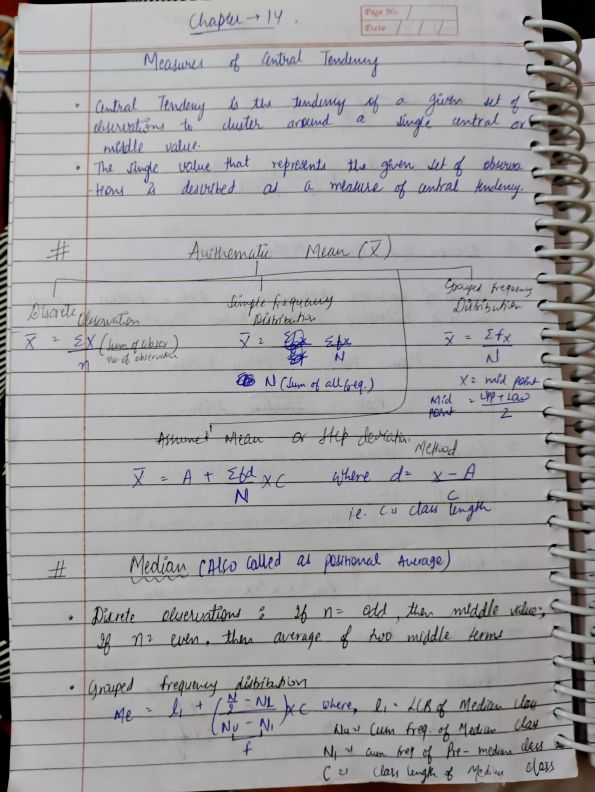 Chapter → 14.
Page No.
Date
Measures of Central Tendency
• Central Tendency is the tendency of a given set of
observations to cluster around a single central or
middle value.
• The single value that represents the given set of observa
-tions is described as a measure of central tendency.
# Arithematic Mean (X̄)
Discrete Observation
X̄ = ΣX (Sum of obser) / n (no. of observation)
Simple frequency
Distribution
X̄ = Σfx / N
N (Sum of all freq.)
Grouped frequency
Distribution
X̄ = Σfx / N
X = mid point
Mid point = Upp + Low / 2
Assumed Mean or Step deviation
Method
X̄ = A + Σfd / N × C where d = x - A / C
i.e. C = class length
# Median (Also called as positional Average)
• Discrete observations : If n = odd, then middle value;
If n = even, then average of two middle terms
• Grouped frequency distribution
Me = l₁ + ( N/2 - Nl / Nu - N₁ ) × C where, l₁ = LCB of Median class
f
Nu = Cum freq. of Median class
N₁ = cum freq of Pre-median class
C = class length of Median class